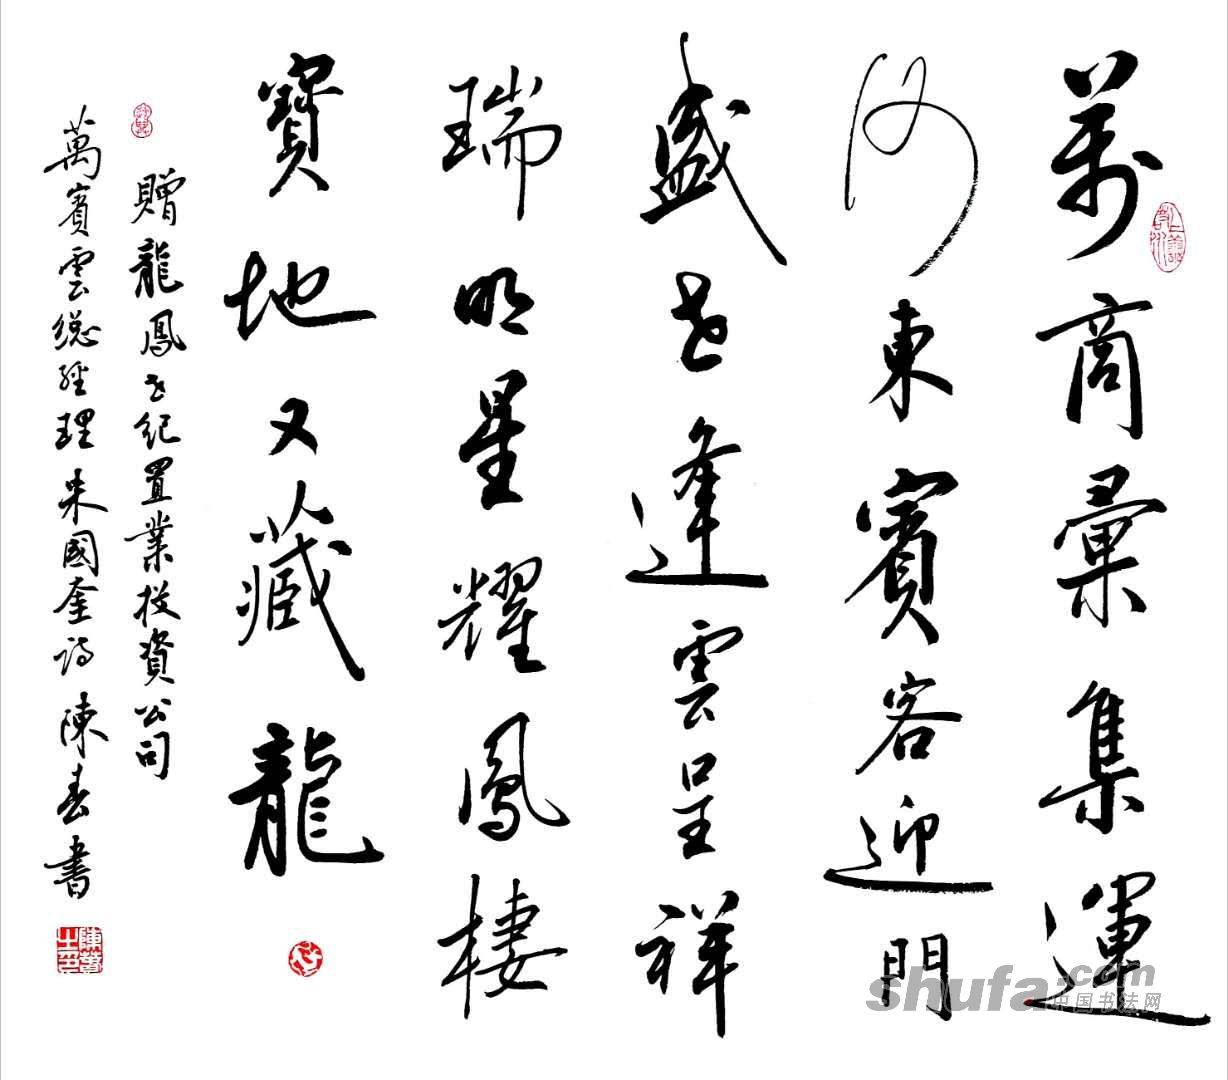 萬商彙集運
河東賓客迎門
盛世逢雲呈祥
瑞明星耀鳳棲
寶地又藏龍
贈龍鳳世紀置業投資公司
萬賓雲總經理朱國奎詩陳春書
shufa.com
中国书法网